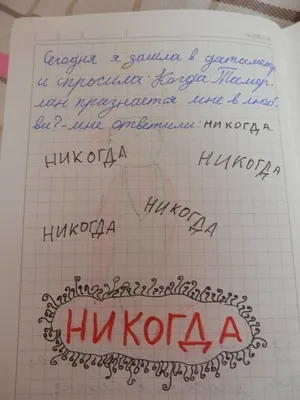 Сегодня я зашла в датаметр
и спросила: Когда Тамер-
лан признается мне в люб-
ви? - мне ответили: НИКОГДА.
НИКОГДА НИКОГДА
НИКОГДА НИКОГДА
НИКОГДА